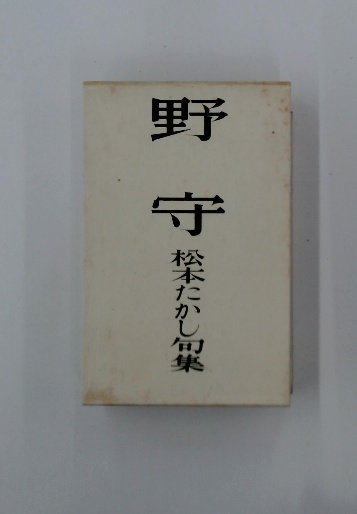 野守
松本たかし句集